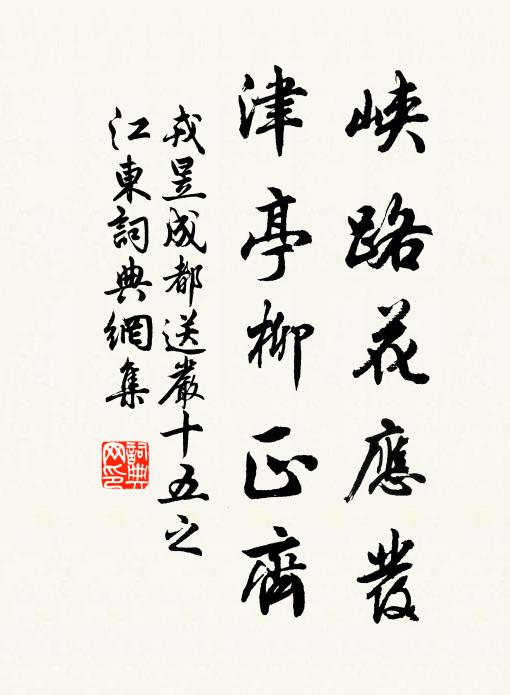 峽路花應發
津亭柳正齊
戎昱成都送嚴十五之
江東詞典網集
詞典
网印